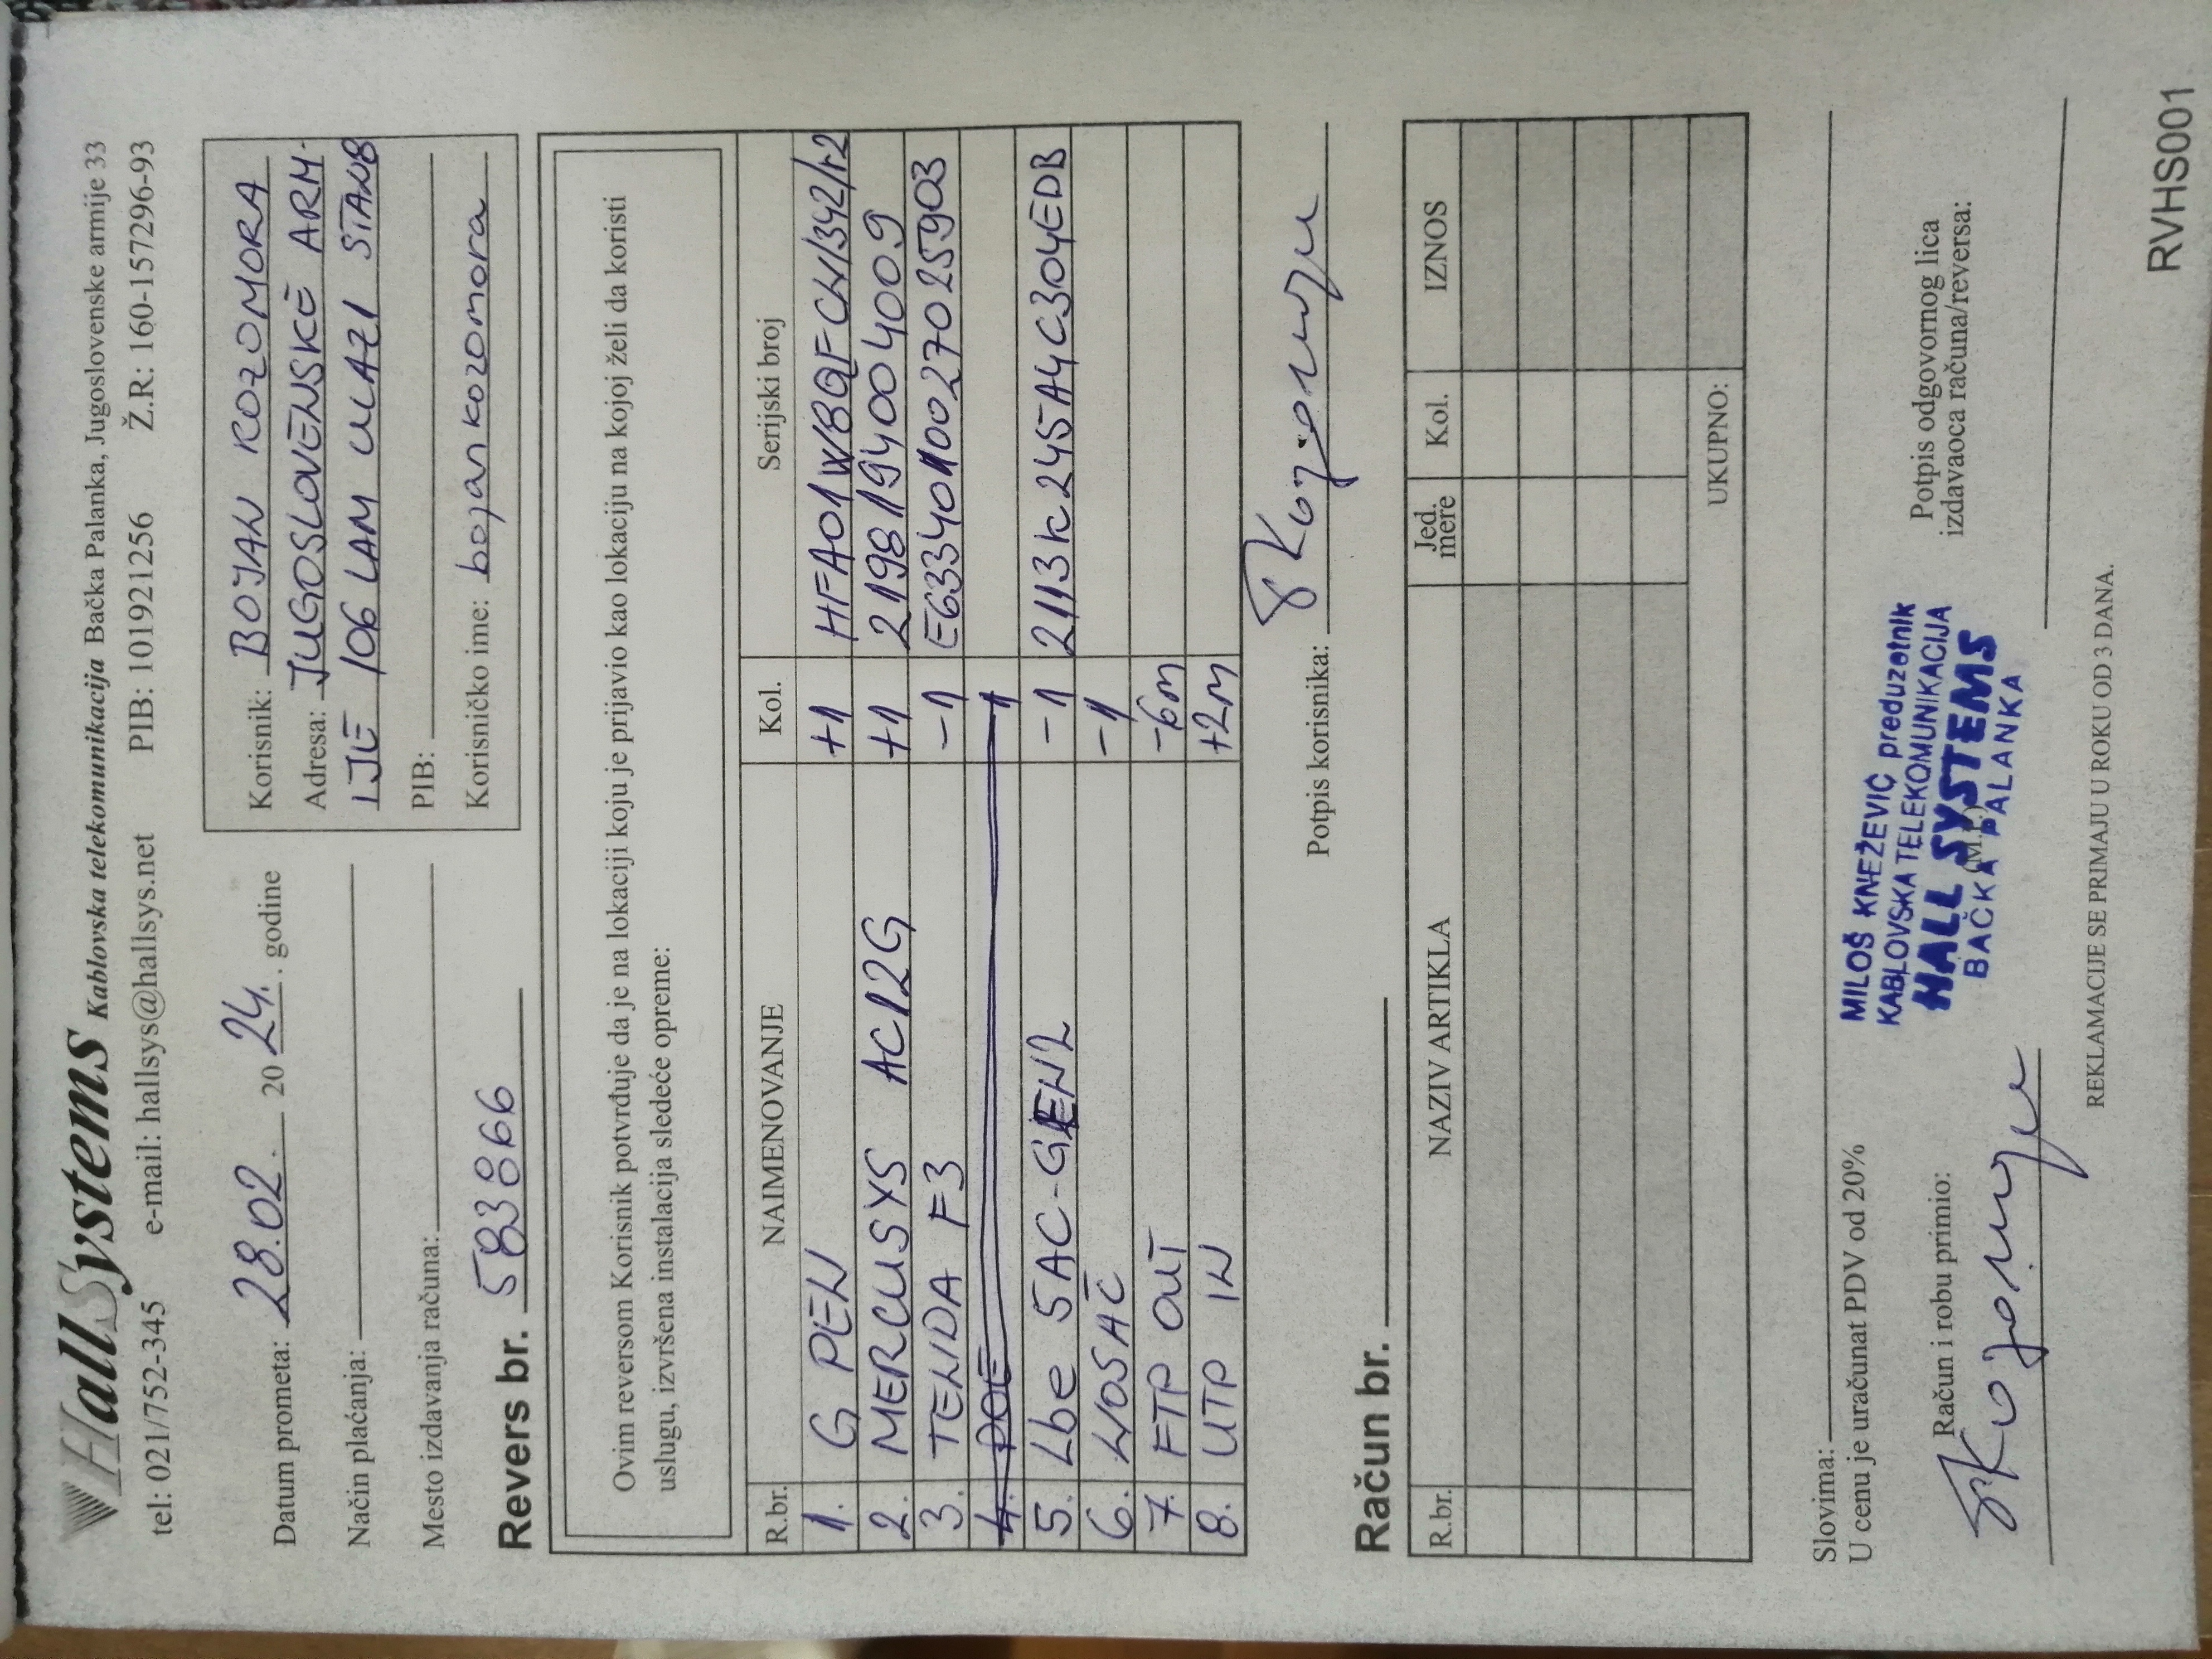 HallSystems Kablovska telekomunikacija Bačka Palanka, Jugoslovenske armije 33
tel: 021/752-345 e-mail: hallsys@hallsys.net PIB: 101921256 Ž.R: 160-157296-93
Datum prometa: 28.02. 20 24. godine
Način plaćanja:
Mesto izdavanja računa:
Korisnik: BOJAN KOZOMORA
Adresa: JUGOSLOVENSKE ARM-
IJE 106 LAM ULAZ 1 STAN 8
PIB:
Korisničko ime: bojankozomora
Revers br. 583866
Ovim reversom Korisnik potvrđuje da je na lokaciji koju je prijavio kao lokaciju na kojoj želi da koristi
uslugu, izvršena instalacija sledeće opreme:
R.br. NAIMENOVANJE Kol. Serijski broj
1. G PEN +1
2. MERCUSYS AC12G +1 2198194004009
3. TENDA F3 -1 E6334010027025903
4. POE 1
5. Lbe 5AC-GEN2 -1 2113K245A4C304EDB
6. NOSAČ -1
7. FTP OUT -6m
8. UTP IN +2m
Potpis korisnika:
Račun br.
R.br. NAZIV ARTIKLA Jed. mere Kol. IZNOS
UKUPNO:
Slovima:
U cenu je uračunat PDV od 20%
Račun i robu primio:
MILOŠ KNEŽEVIĆ preduzetnik
KABLOVSKA TELEKOMUNIKACIJA
HALL SYSTEMS
BAČKA PALANKA
(M.P.)
Potpis odgovornog lica
izdavaoca računa/reversa:
REKLAMACIJE SE PRIMAJU U ROKU OD 3 DANA.
RVHS001